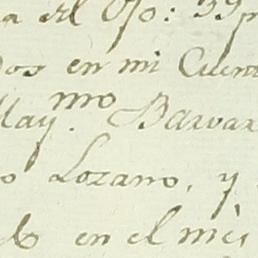 a el Oto: 39
dos en mi Cuent
May. mo Barvar
o Lozano, y
en el mes